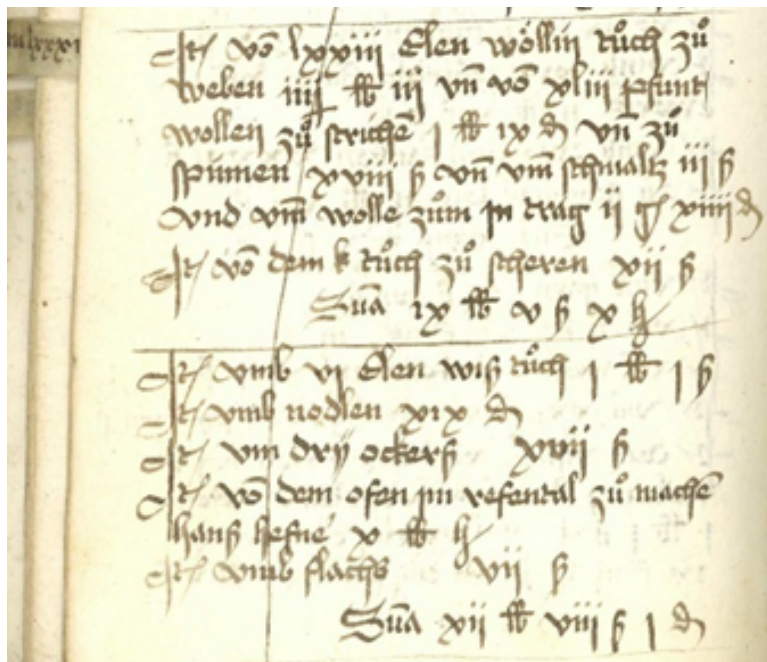 It vō lxxiii Elen wöllin tůch zů
weben iiij lb iii vn̄ vō xliii pfunt
wollen zů strichē i lb ix d vn̄ zů
spinnen xviii ß vn̄ vm̄ schmaltz iii ß
vnd vm̄ wolle zům in trag ii g xiiii d
It vō dem k tůch zů scheren xii ß
Sūa ix lb v ß x h
It vmb vi Elen wiß tůch i lb i ß
It vmb nodlen xix d
It vm dry ockerß xvii ß
It vō dem ofen im refental zů machē
hanß hefne x lb h
It vmb flachs vii ß
Sūa xii lb viii ß i d